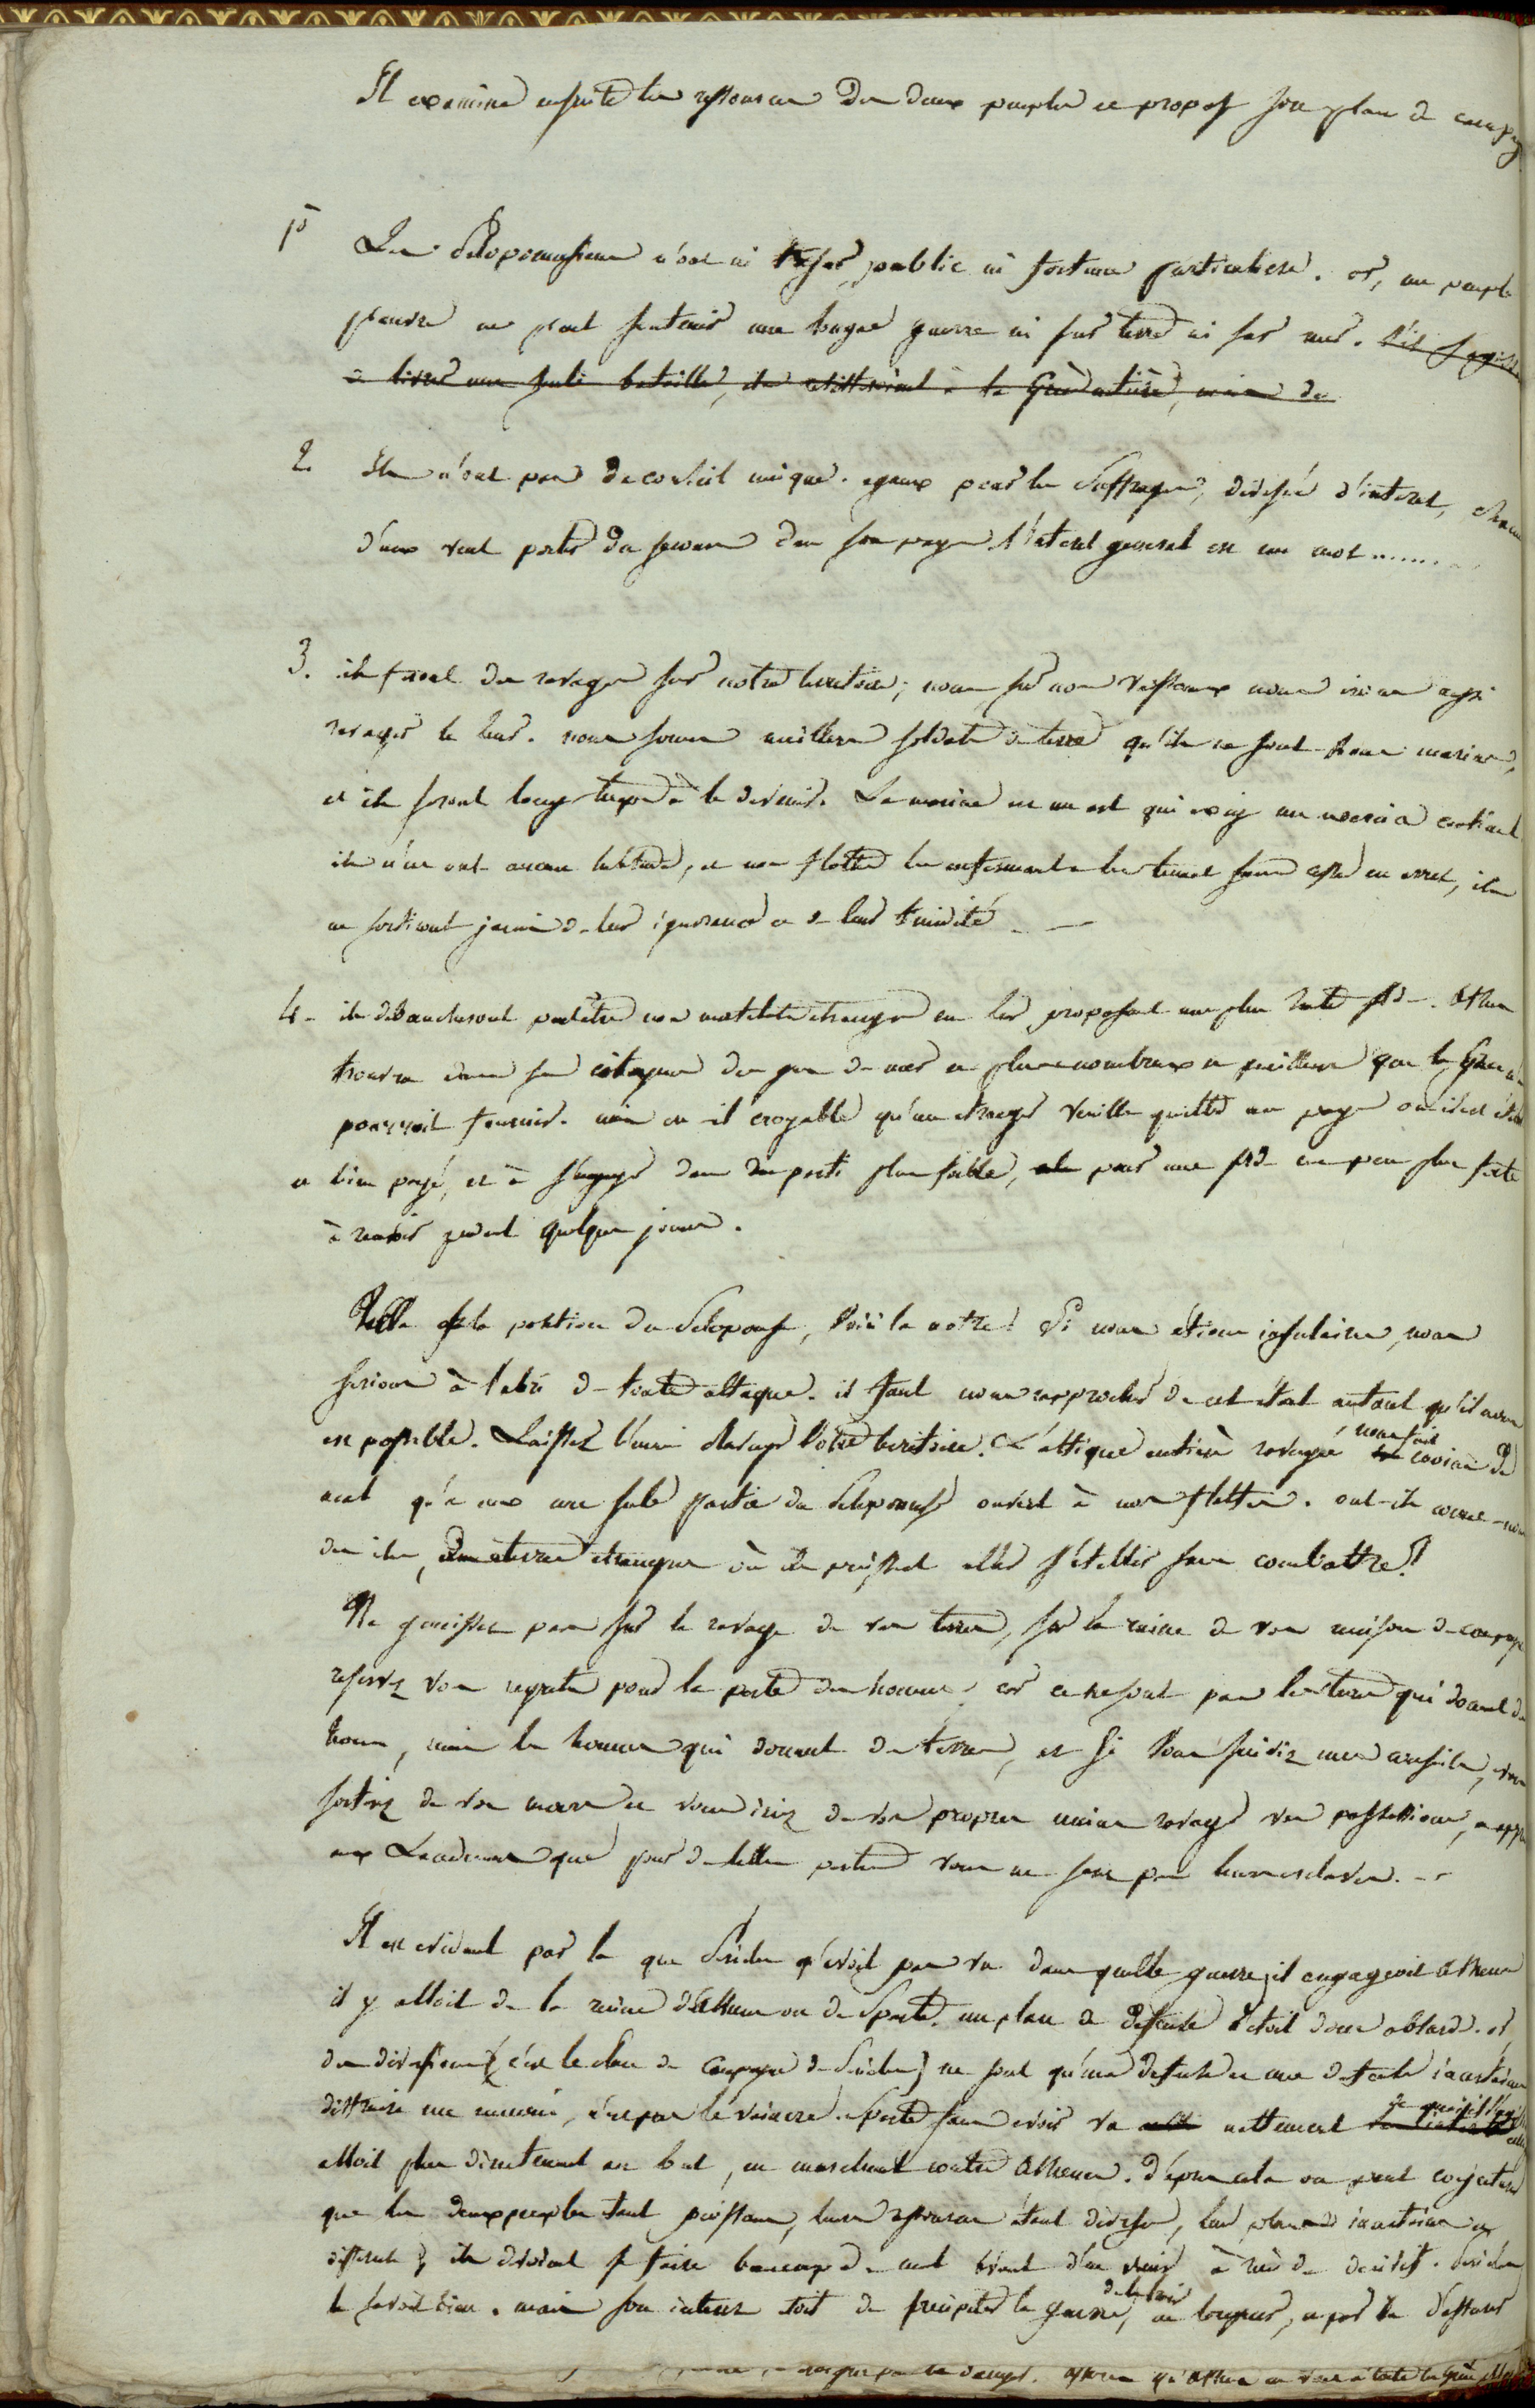 Il examine ensuite les ressources des deux peuples et propose son plan de campag
1° Les Peloponnesiens n'ont ni tresor public ni fortune particuliere. or, un peuple
pauvre ne peut soutenir une longue guerre ni sur terre ni sur mer. s'il s'agissoit
de livrer une seule bataille, ils resisteroient à la Grèce entière, mais de
2. Ils n'ont pas de conseil unique. egaux pour les suffrages, divisés d'interet, chacun
d'eux veut porter du secours dans son pays. l'interet general est un mot ........
3. ils feront des ravages sur notre territoire; nous, sur nos vaisseaux nous irons aussi
ravager le leur. nous sommes meilleurs soldats de terre qu'ils ne sont bons marins,
et ils seront longtemps à le devenir. La marine est un art qui exige un exercice continuel
ils n'en ont aucune habitude, et nos flottes les enfermant et les tenant sans cesse en arret, ils
ne sortiront jamais de leur ignorance et de leur timidité. —
4. ils debaucheront peutêtre nos matelots etrangers en leur proposant une plus haute solde. Athenes
trouvera dans ses citoyens des gens de mer et plus nombreux et meilleurs que la Grèce n'en
pourroit fournir. mais est-il croyable qu'un etranger veuille quitter un pays où il est
et bien payé, et s'engager dans un parti plus faible, pour une solde un peu plus forte
à recevoir pendant quelques jours.
Telle est la position du Peloponese, Voici la notre! Si nous étions insulaires, nous
serions à l'abri de toute attaque. il faut nous rapprocher de cet état autant qu'il nous
est possible. Laissez l'ennemi ravager votre territoire. L'attique entière ravagée nous fait moins de
mal qu'à eux une seule partie du Peloponese ouverte à nos flottes. ont-ils comme nous
des iles, des terres etrangeres où ils puissent aller s'établir sans combattre?!
Ne gemissez pas sur le ravage de vos terres, sur la ruine de vos maisons de campagne
reservez vos regrets pour la perte des hommes; car ce ne sont pas les terres qui donnent des
hommes, mais les hommes qui donnent des terres, et si vous suiviez mes conseils, vous
sortirez de vos murs et vous iriez de vos propres mains ravager vos possessions, et appr
aux Lacedemoniens que pour de telles pertes vous ne serez pas leurs esclaves. —
Il est evident par là que Periclès n'avoit pas vu dans quelle guerre il engageoit Athenes
il y alloit de la ruine d'Athenes ou de Sparte. un plan de defense étoit donc absurde. et
des diversions (c'est le plan de campagne de Periclès) ne sont qu'une defense et une defense incertaine
distraire un ennemi, n'est pas le vaincre. Sparte sans avoir vu nettement de quoi il s'agissoit
alloit plus directement au but, en marchant contre Athenes. d'après cela on peut conjecturer
que les deux peuples etant puissans, leurs ressources étant diverses, leur plan incertain et
different, ils devoient se faire beaucoup de mal avant d'en venir à rien de decisif. Periclès
le savoit bien. mais son interet étoit de precipiter la guerre, de la voir en longueur, et par là